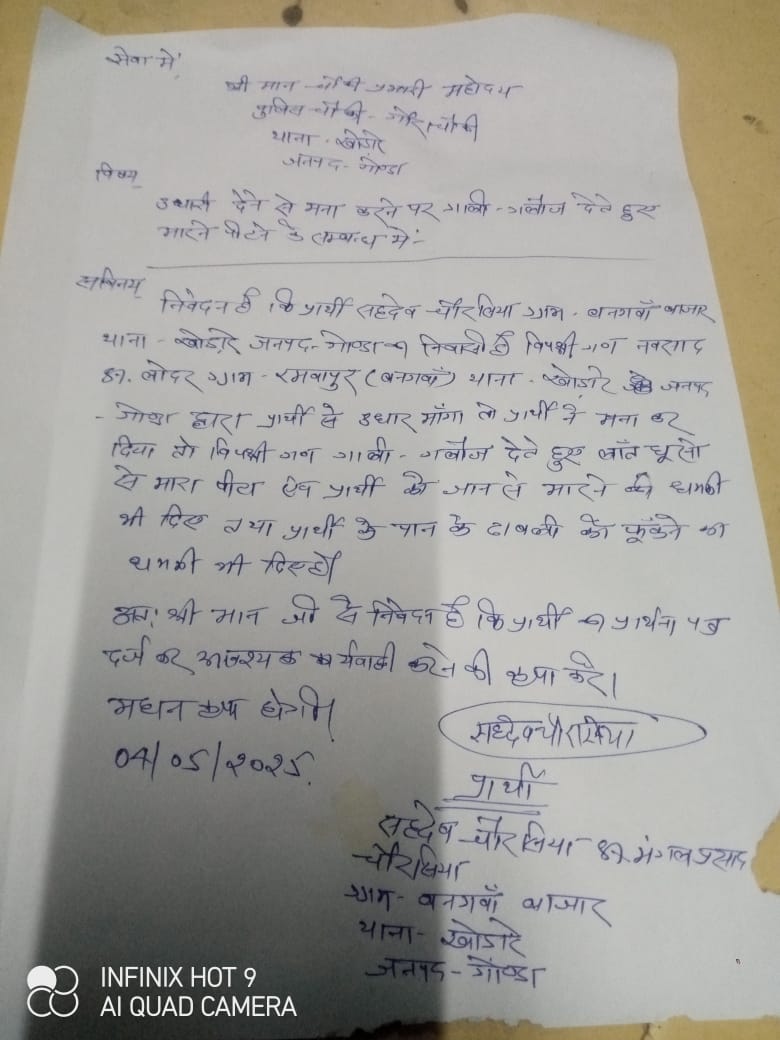 सेवा में,
श्री मान चौकी प्रभारी महोदय
पुलिस चौकी - गौराचौकी
थाना - खोडारे
जनपद - गोण्डा
विषय,
उधारी देने से मना करने पर गाली - गलौज देते हुए
मारने पीटने के सम्बन्ध में:-
सविनय,
निवेदन है कि प्रार्थी सहदेव चौरसिया ग्राम - बनगवाँ बाजार
थाना - खोड़ारे जनपद - गोण्डा का निवासी है विपक्षी गण
S/O. ग्राम - रमवापुर (बनगवाँ) थाना - खोडारे जनपद
- गोण्डा द्वारा प्रार्थी से उधार माँगा तो प्रार्थी ने मना कर
दिया तो विपक्षी गण गाली - गलौज देते हुए लात घूसो
से मारा पीटा एवं प्रार्थी को जान से मारने की धमकी
भी दिए तथा प्रार्थी के पान के ढाबली को फूँकने का
धमकी भी दिए है।
अतः श्री मान जी से निवेदन है कि प्रार्थी का प्रार्थना पत्र
दर्ज कर आवश्यक कार्यवाही करने की कृपा करें।
महान कृपा होगी।
सहदेव चौरसिया
04/05/२०२५.
प्रार्थी
सहदेव चौरसिया S/O. मंगल प्रसाद
चौरसिया
ग्राम - बनगवाँ बाजार
थाना - खोडारे
जनपद - गोण्डा
INFINIX HOT 9
AI QUAD CAMERA